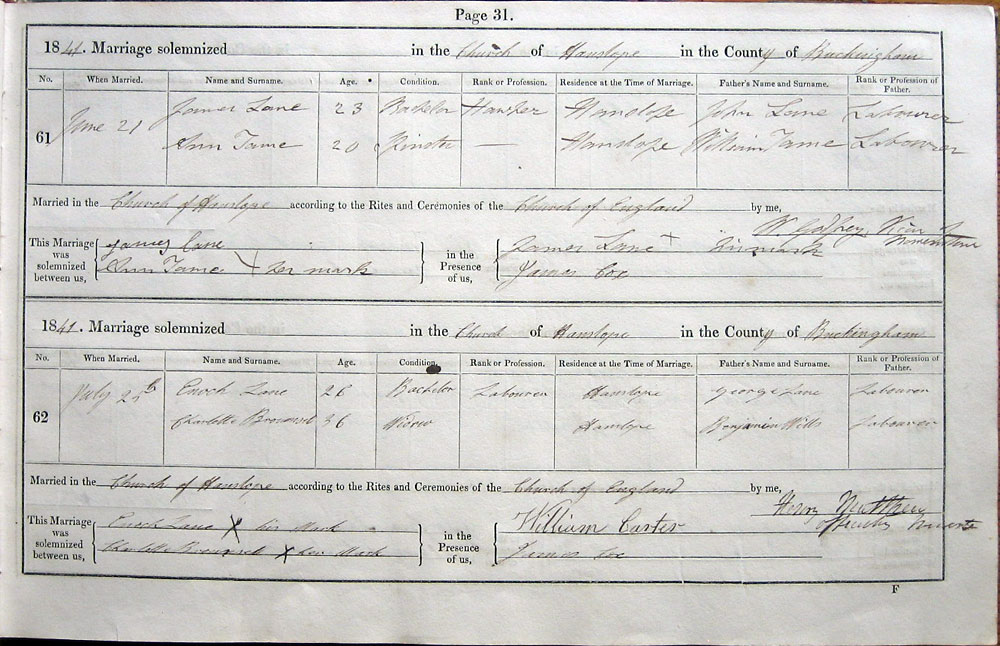 Page 31.
1841. Marriage solemnized in the Church of Hanslope in the County of Buckingham
No. When Married. Name and Surname. Age. Condition. Rank or Profession. Residence at the Time of Marriage. Father's Name and Surname. Rank or Profession of Father.
61 June 21 James Lane 23 Bachelor Hawker Hanslope John Lane Labourer
Ann Tame 20 Spinster — Hanslope William Tame Labourer
Married in the Church of Hanslope according to the Rites and Ceremonies of the Church of England by me,
W Godfrey
This Marriage was solemnized between us, James Lane in the Presence of us, James Lane + his mark
Ann Tame X her mark James Cox
1841. Marriage solemnized in the Church of Hanslope in the County of Buckingham
No. When Married. Name and Surname. Age. Condition. Rank or Profession. Residence at the Time of Marriage. Father's Name and Surname. Rank or Profession of Father.
62 July 25 Enoch Lane 26 Bachelor Labourer Hanslope George Lane Labourer
Charlotte 36 Widow Hanslope Benjamin Wills Labourer
Married in the Church of Hanslope according to the Rites and Ceremonies of the Church of England by me,
Henry
This Marriage was solemnized between us, Enoch Lane X his Mark in the Presence of us, William Carter
Charlotte X her Mark James Cox
F